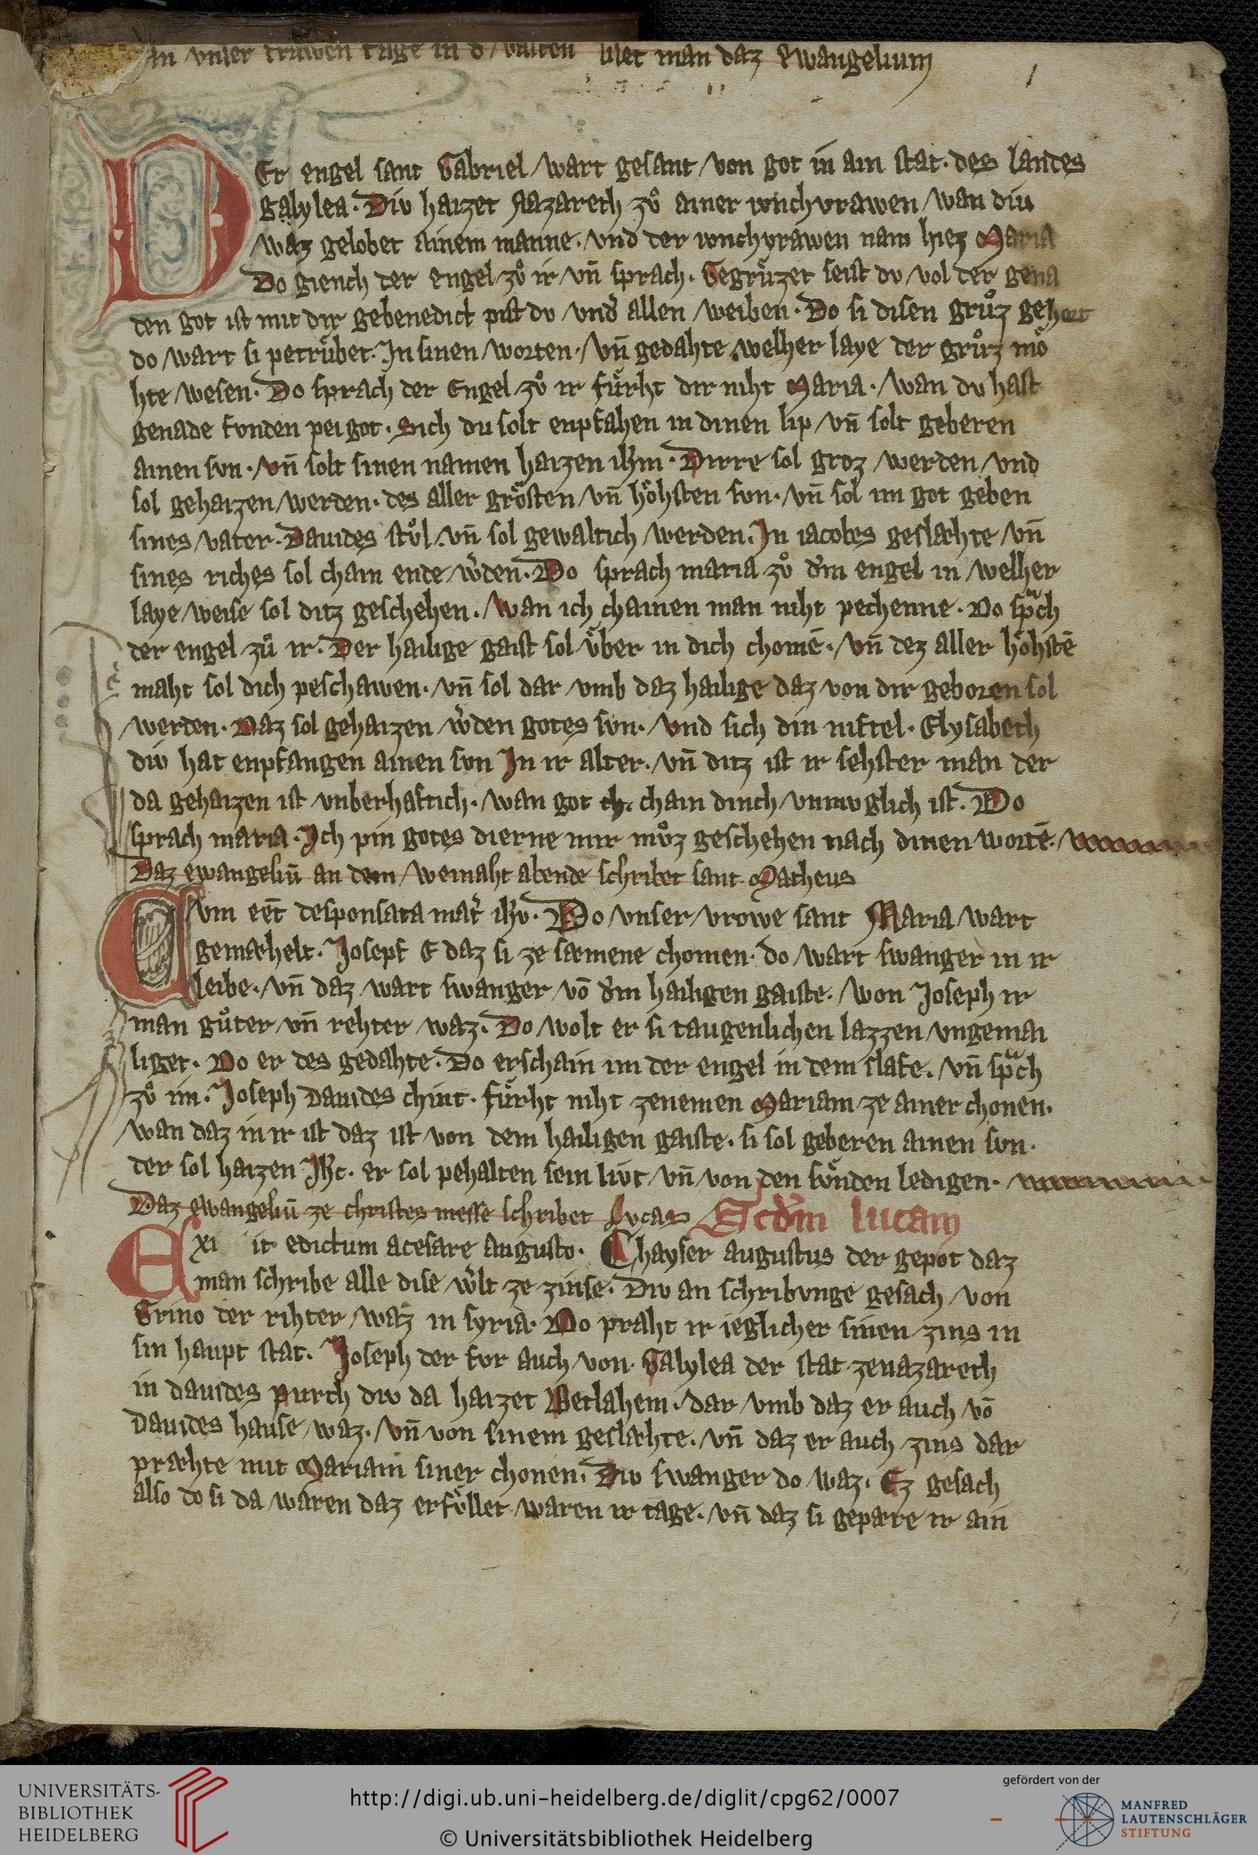 an vnser vrawen tage in d᾽ vasten liset man daz Ewangelium
1
DEr engel sant Gabriel wart gesant von got in ain stat· des landes
galylea· Div haizet Nazareth zuͦ ainer iunchvrawen wan diu
waz gelobet ainem manne· vnd der iunchvrawen nam hiez Maria
Do giench der engel zuͦ ir vn̄ sprach· Gegruͤzet seist dv vol der gena
den got ist mit dir gebenedict pist dv vnd᾽ allen weiben· Do si disen gruͦz gehort
do wart si petruͤbet· In sinen worten· vn̄ gedahte welher laye der gruͦz moͤ
hte wesen· Do sprach der Engel zuͦ ir fuͤrht dir niht Maria· wan dv hast
genade fvnden pei got· Sich du solt enpfahen in dinen lip vn̄ solt geberen
ainen svn· vn̄ solt sinen namen haizen ihm· Dirre sol groz werden vnd
sol gehaizen werden· des aller groͤsten vn̄ hoͤhsten svn· vn̄ sol im got geben
sines vater· Dauides stuͦl vn̄ sol gewaltich werden· In iacobes geslæhte vn̄
sines riches sol chain ende w᾽den· Do sprach maria zuͦ d᾽m engel in welher
laye weise sol ditz geschehen· wan ich chainen man niht pechenne· Do spͣch
der engel zuͦ ir· Der hailige gaist sol vͤber in dich chomē· vn̄ dez aller hoͤhstē
maht sol dich peschawen· vn̄ sol dar vmb daz hailige daz von dir geboren sol
werden· Daz sol gehaizen w᾽den gotes svn· vnd sich din niftel· Elysabeth
div hat enpfangen ainen svn In ir alter· vn̄ ditz ist ir sehster man der
da gehaizen ist vnberhaftich· wan got ch· chain dinch vnmvglich ist· Do
sprach maria· Ich pin gotes dierne mir muͦz geschehen nach dinen wortē·
Daz ewangeliū an dem weinaht abende schribet sant Matheus
CVm eēt desponsata mat᾽ ihv· Do vnser vrowe sant Maria wart
gemæhelt· Josepf E daz si ze sæmene chomen· do wart swanger in ir
leibe· vn̄ daz wart swanger vō d᾽m hailigen gaiste· won Joseph ir
man guͦter vn̄ rehter waz· Do wolt er si taugenlichen lazzen vngemai
liget· Do er des gedahte· Do erschain im der engel in dem slafe· vn̄ spͣch
zuͦ im· Joseph Dauides chint· fuͤrht niht zenemen Mariam ze ainer chonen·
wan daz in ir ist daz ist von dem hailigen gaiste· si sol geberen ainen svn·
der sol haizen Jhc· er sol pehalten sein livt vn̄ von den svͤnden ledigen·
Daz ewangeliū ze christes messe schribet Lycas Scd᾽m lucam
Exi it edictum a cesare augusto· Chayser augustus der gepot daz
man schribe alle dise w᾽lt ze zinse· Div an schribvnge gesach von
Cirino der rihter waz in syria· Do praht ir ieglicher sinen zins in
sin haupt stat· Joseph der fvr auch von Galylea der stat zenazareth
in dauides purch div da haizet Betlahem· dar vmb daz er auch vō
Dauides hause waz· vn̄ von sinem geslæhte· vn̄ daz er auch zins dar
præhte mit Mariam siner chonen· Div swanger do waz· Ez gesach
also do si da waren daz erfvͤllet waren ir tage· vn̄ daz si gepære ir ain
UNIVERSITÄTS-
BIBLIOTHEK
HEIDELBERG
http://digi.ub.uni-heidelberg.de/diglit/cpg62/0007
© Universitätsbibliothek Heidelberg
gefördert von der
MANFRED
LAUTENSCHLÄGER
STIFTUNG